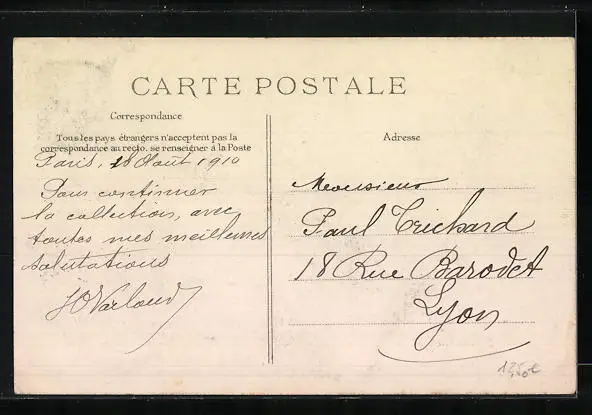 CARTE POSTALE
Correspondance
Tous les pays étrangers n'acceptent pas la
correspondance au recto, se renseigner à la Poste
Paris, 28 Août 1910
Pour continuer
la collection, avec
toutes mes meilleures
salutations
Adresse
Monsieur
Paul Trichard
18 Rue Barodet
Lyon